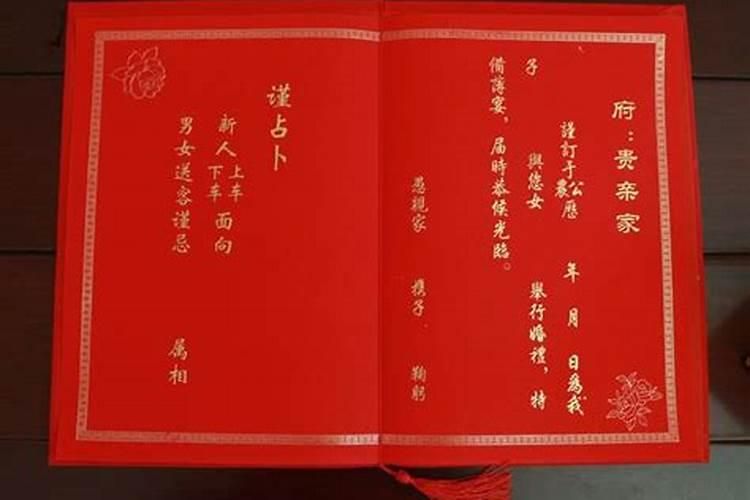 府：贵亲家
謹訂于公農歷 年 月 日為我
子 與您女 舉行婚禮，特
備薄宴，届時恭候光臨。
愚親家 携子 鞠躬
谨占卜
新人上下車車面向
男女送客谨忌 属相